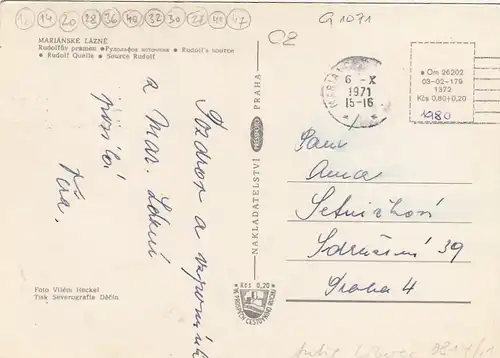 14 20 28 36 40 32 30 27 40 47
G 1071
MARIÁNSKÉ LÁZNĚ
Rudolfův pramen • Рудольфов источник • Rudolf's source
• Rudolf Quelle • Source Rudolf
6 -X
1971
15-16
• Om 26202
03-02-179
1372
Kčs 0,60+0,20
1980
Pozdrav a vzpomínku
z Mar. Lázní
posílá
Věra.
NAKLADATELSTVÍ PRESSFOTO PRAHA
Kčs 0,20
VE PROSPĚCH CESTOVNÍHO RUCHU
Paní
Anna
Sdružení 39
Praha 4
Foto Vilém Heckel
Tisk Severografia Děčín